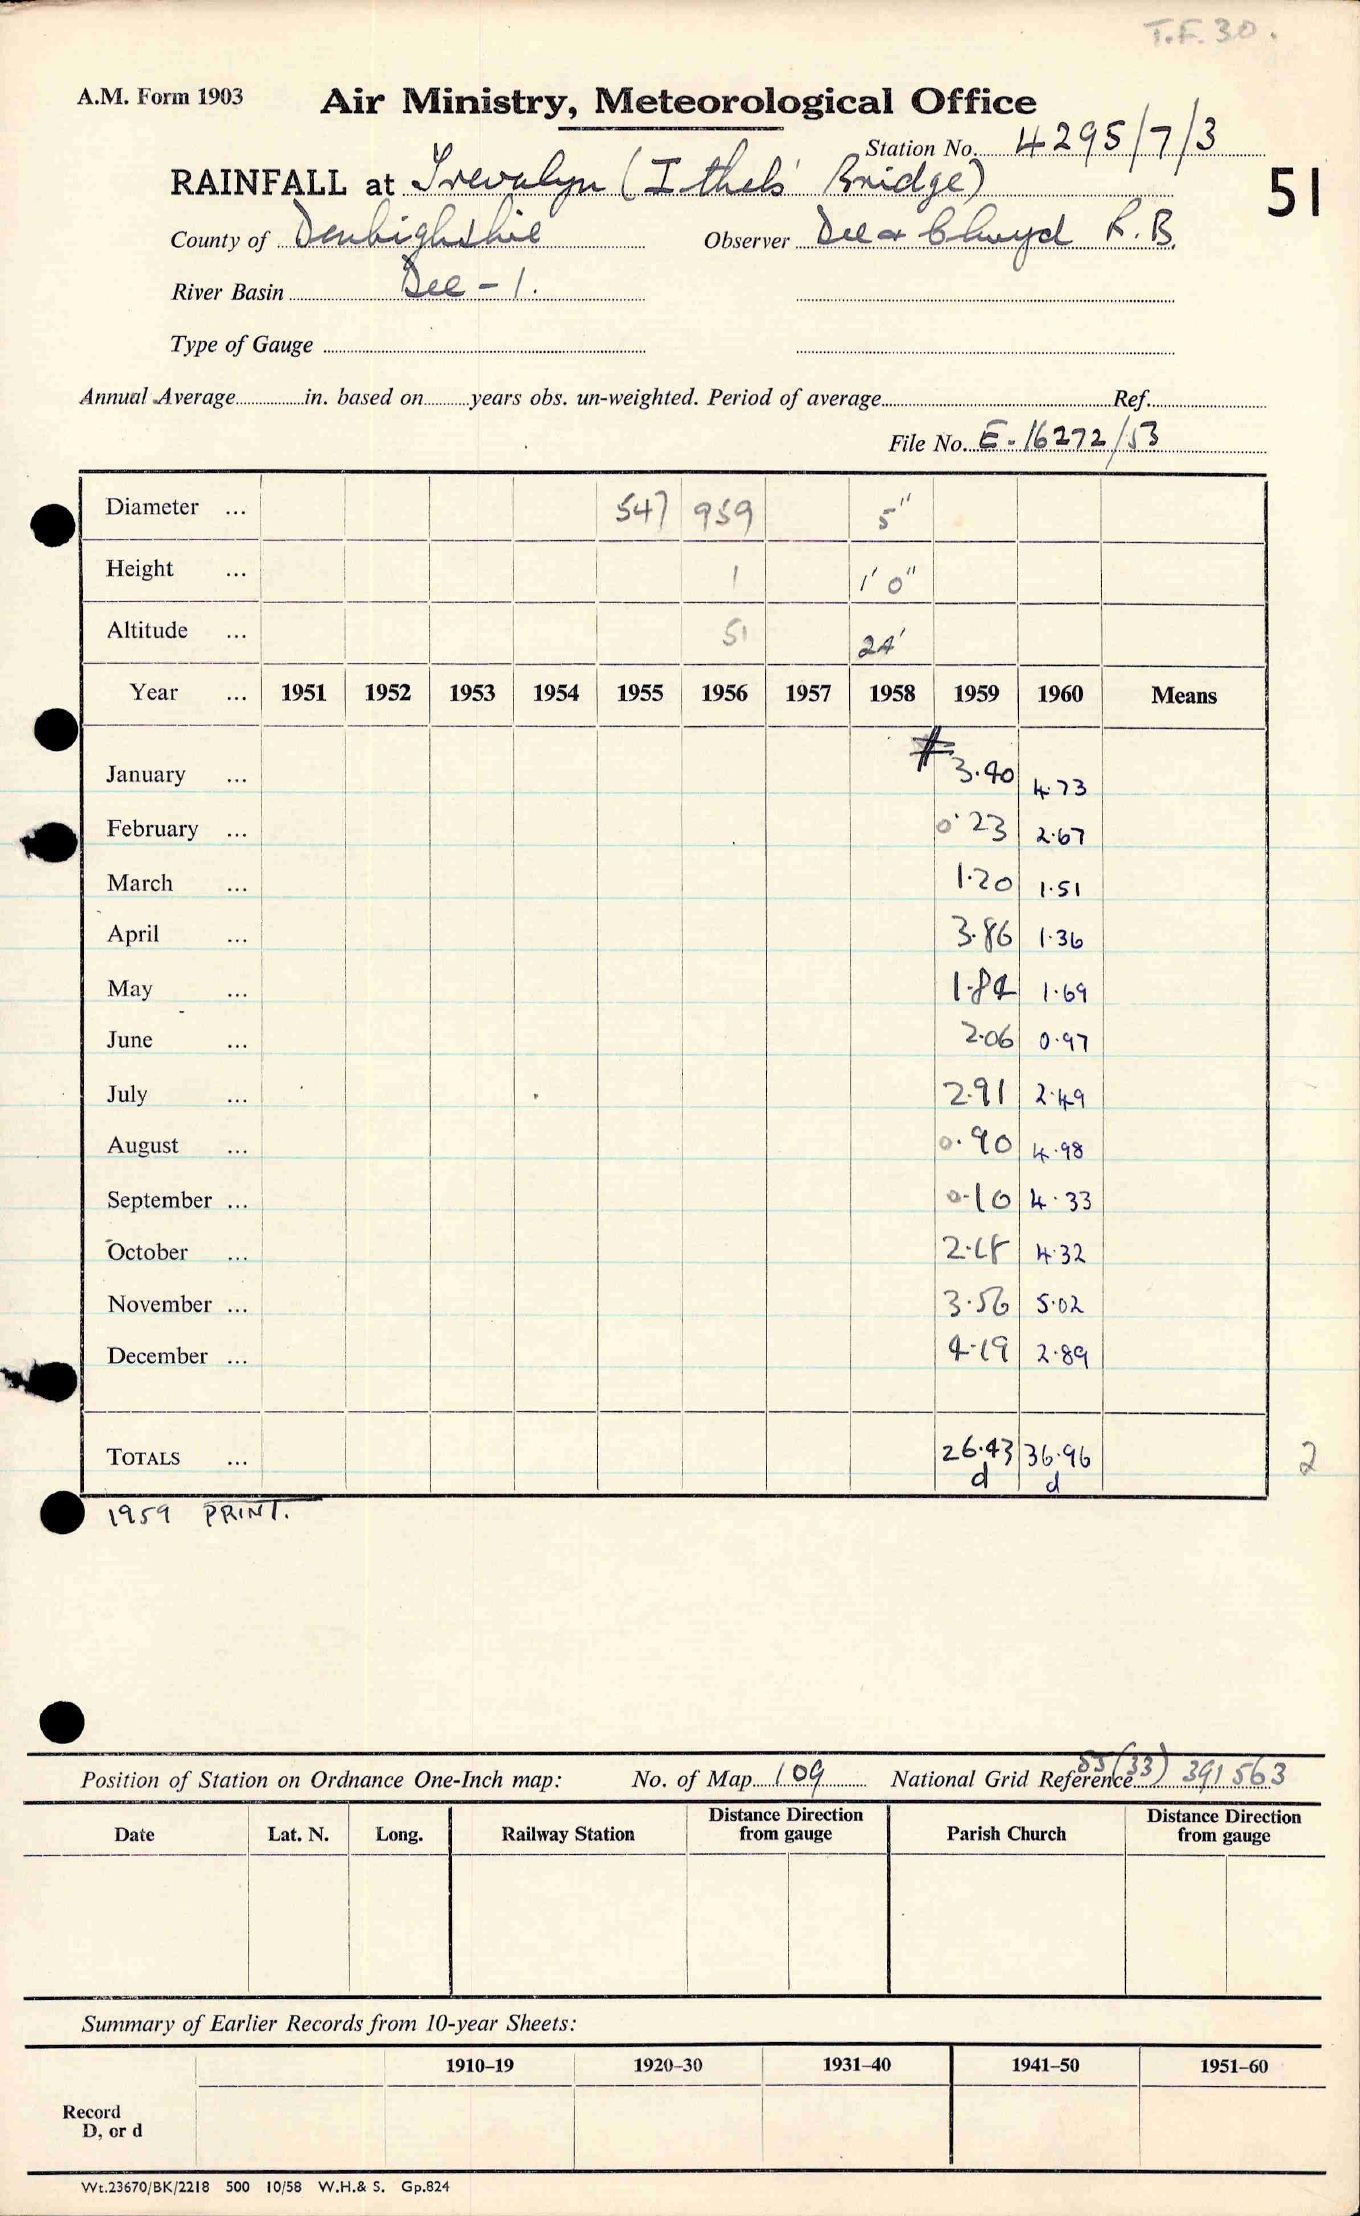 T.F. 30.
A.M. Form 1903
Air Ministry, Meteorological Office
Station No. 4295/7/3
RAINFALL at Trevalyn (Ithels' Bridge)
51
County of Denbighshire Observer Dee & Clwyd R.B.
River Basin Dee - 1.
Type of Gauge
Annual Average in. based on years obs. un-weighted. Period of average Ref.
File No. E-16272/53
Diameter ... 547 959 5"
Height ... 1 1' 0"
Altitude ... 51 24'
Year ... 1951 1952 1953 1954 1955 1956 1957 1958 1959 1960 Means
January ... # 3.40 4.73
February ... 0.23 2.67
March ... 1.20 1.51
April ... 3.86 1.36
May ... 1.84 1.69
June ... 2.06 0.97
July ... 2.91 2.49
August ... 0.90 4.98
September ... 0.10 4.33
October ... 2.18 4.32
November ... 3.56 5.02
December ... 4.19 2.89
TOTALS ... 26.43 36.96 2
d d
1959 PRINT.
Position of Station on Ordnance One-Inch map: No. of Map 109 National Grid Reference 55 (33) 391563
Date Lat. N. Long. Railway Station Distance Direction from gauge Parish Church Distance Direction from gauge
Summary of Earlier Records from 10-year Sheets:
1910–19 1920–30 1931–40 1941–50 1951–60
Record
D, or d
Wt.23670/BK/2218 500 10/58 W.H.& S. Gp.824